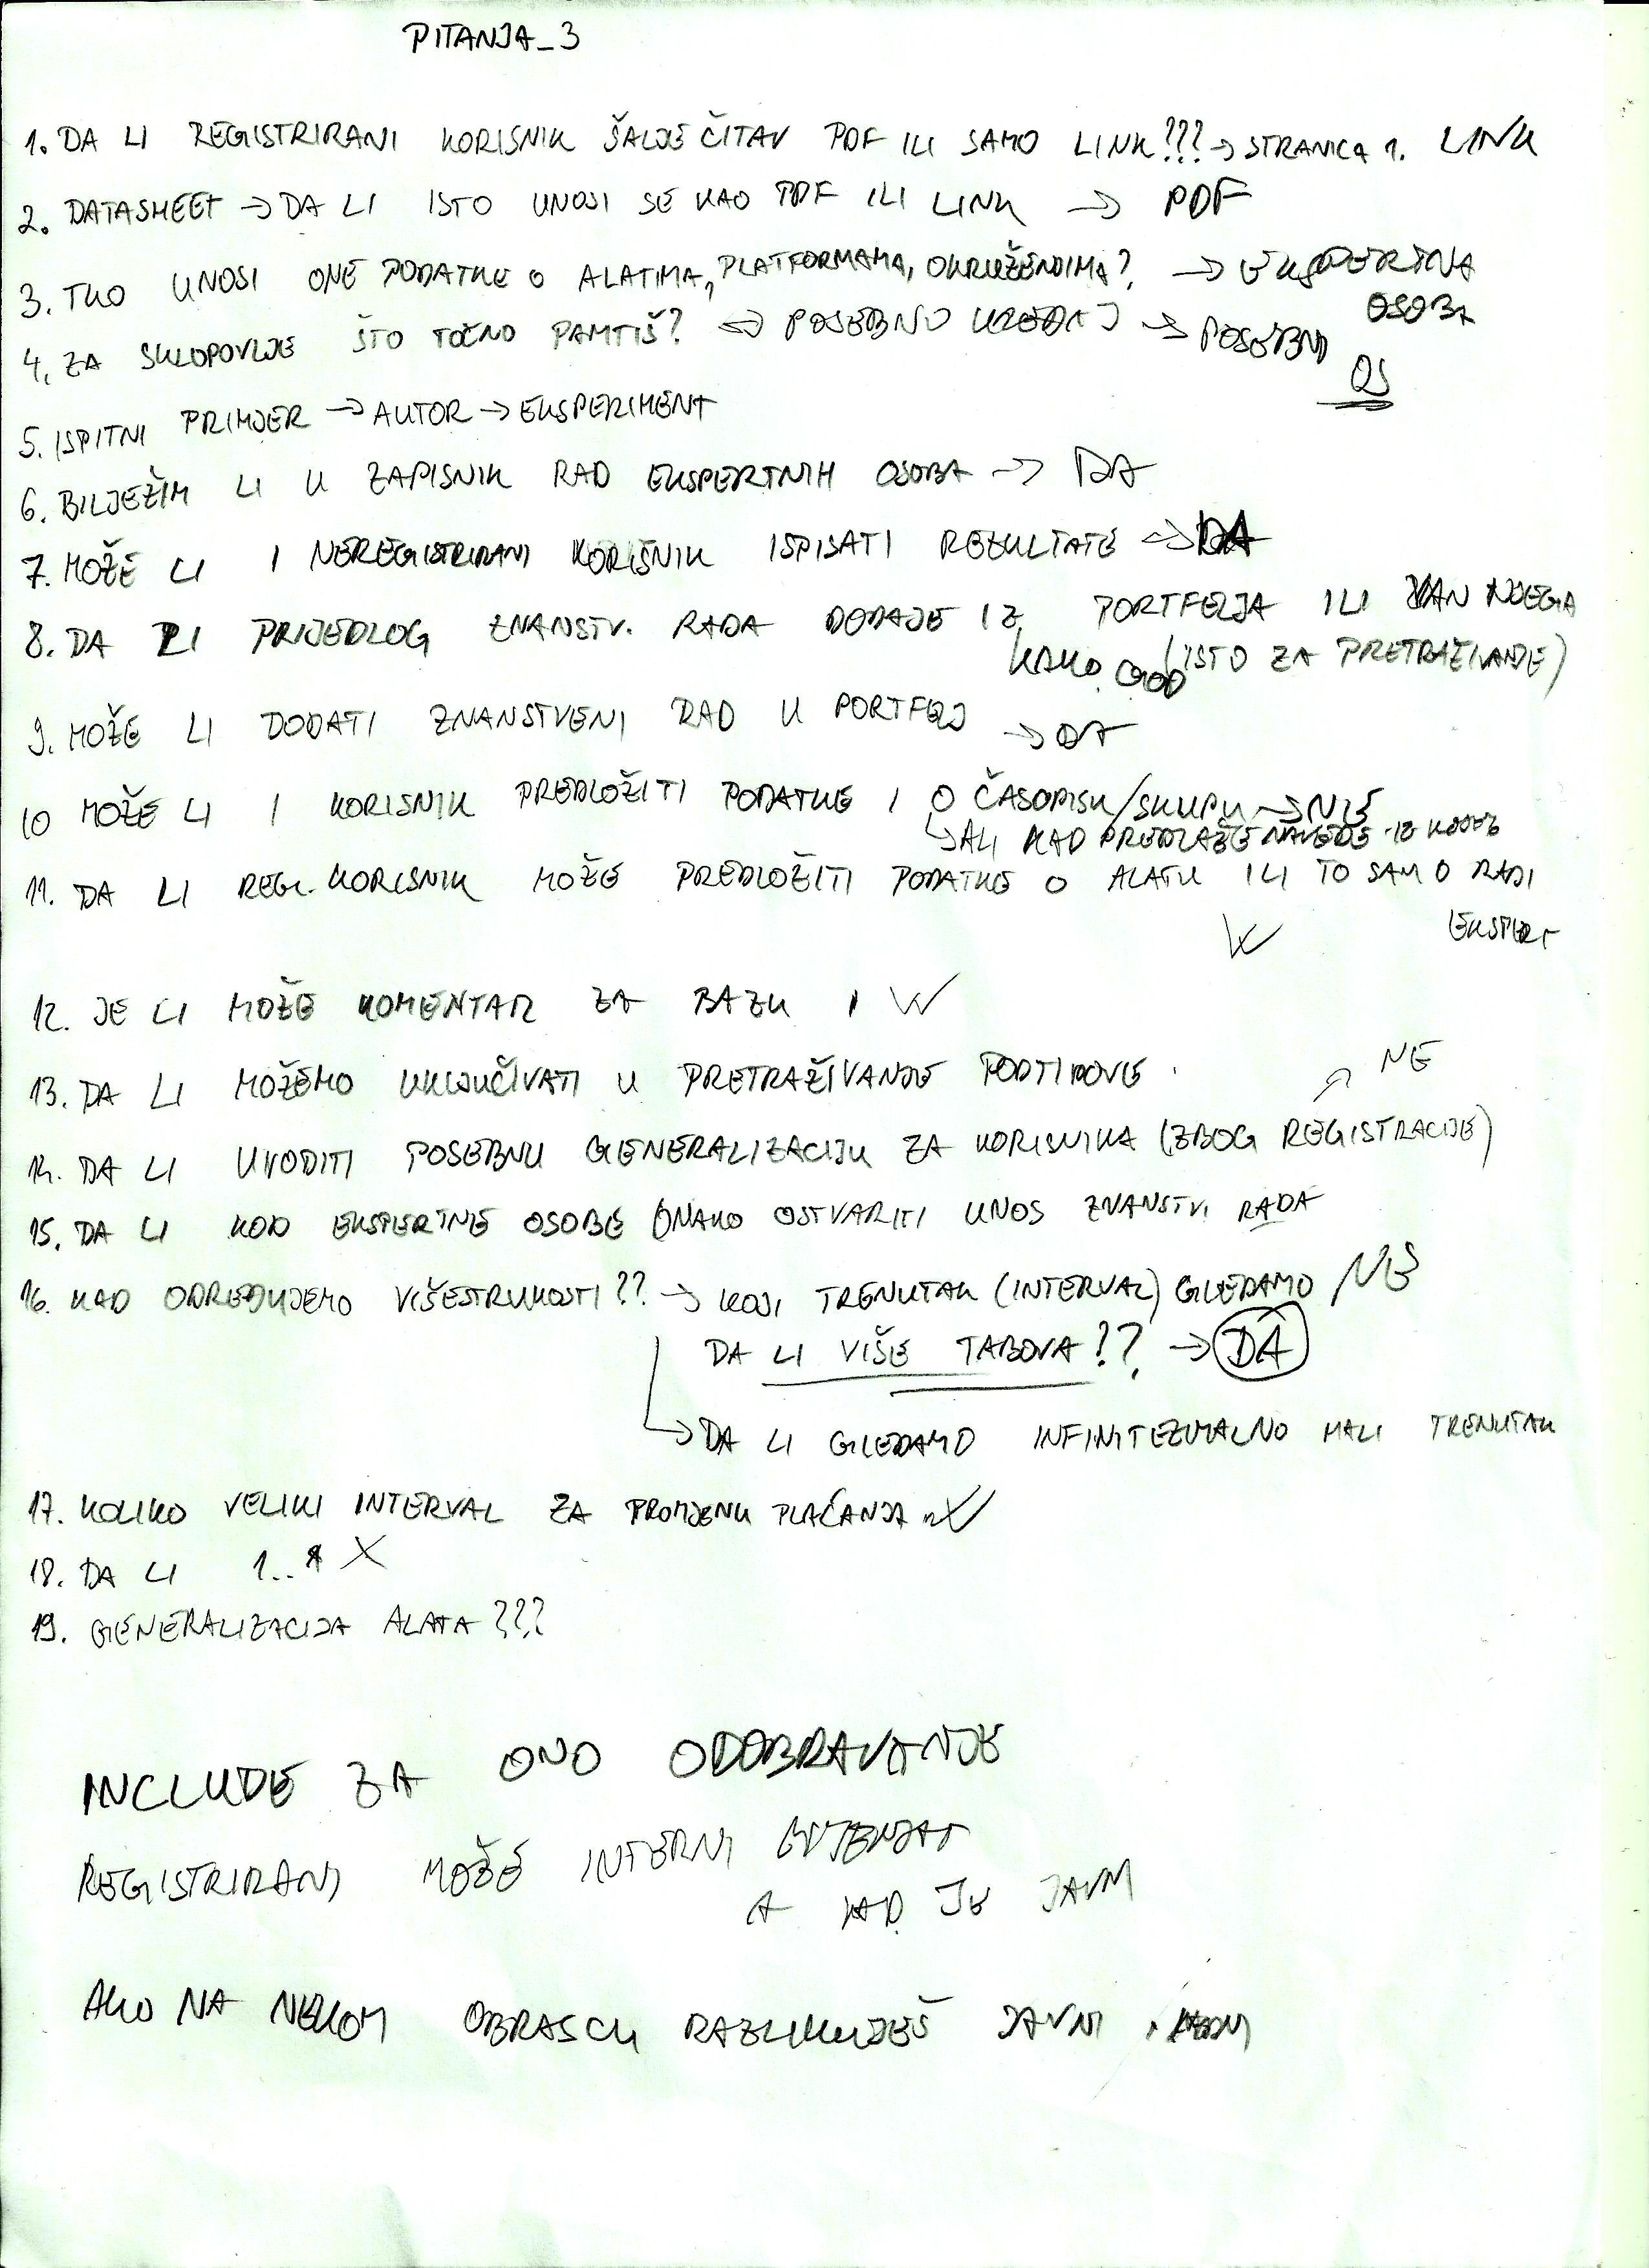 PITANJA_3
1. DA LI REGISTRIRANI KORISNIK ŠALJE ČITAV PDF ILI SAMO LINK??? → STRANICA 1. LINK
2. DATASHEET → DA LI ISTO UNOSI SE KAO PDF ILI LINK → PDF
3. TKO UNOSI ONE PODATKE O ALATIMA, PLATFORMAMA, OKRUŽENJIMA? → EKSPERTNA
OSOBA
4. ZA SKLOPOVLJE ŠTO TOČNO PAMTIŠ? → POSEBNO UREĐAJ → POSEBNO
OS
5. ISPITNI PRIMJER → AUTOR → EKSPERIMENT
6. BILJEŽIM LI U ZAPISNIK RAD EKSPERTNIH OSOBA → DA
7. MOŽE LI I NEREGISTRIRANI KORISNIK ISPISATI REZULTATE → DA
8. DA LI PRIJEDLOG ZNANSTV. RADA DODAJE IZ PORTFELJA ILI VAN NJEGA
KAKO GOD (ISTO ZA PRETRAŽIVANJE)
9. MOŽE LI DODATI ZNANSTVENI RAD U PORTFELJ → DA
10 MOŽE LI I KORISNIK PREDLOŽITI PODATKE I O ČASOPISU/SKUPU → NE
↳ ALI KAD PREDLAŽE NAVEDE IZ KOJEG
11. DA LI REG. KORISNIK MOŽE PREDLOŽITI PODATKE O ALATU ILI TO SAMO RADI
EKSPERT
12. JE LI MOŽE KOMENTAR ZA BAZU
13. DA LI MOŽEMO UKLJUČIVATI U PRETRAŽIVANJE PODTIPOVE
NE
14. DA LI UVODITI POSEBNU GENERALIZACIJU ZA KORISNIKA (ZBOG REGISTRACIJE)
15. DA LI KOD EKSPERTNE OSOBE ONAKO OSTVARITI UNOS ZNANSTV. RADA
16. KAD ODREĐUJEMO VIŠESTRUKOSTI?? → KOJI TRENUTAK (INTERVAL) GLEDAMO NE
DA LI VIŠE TABOVA?? → DA
↳ DA LI GLEDAMO INFINITEZIMALNO MALI TRENUTAK
17. KOLIKO VELIKI INTERVAL ZA PROMJENU PLAĆANJA
18. DA LI 1..* X
19. GENERALIZACIJA ALATA???
INCLUDE ZA ONO ODOBRAVANJE
REGISTRIRANI MOŽE INTERNI
A KAD JE JAVNI
AKO NA NEKOM OBRASCU RAZLIKUJEŠ JAVNI